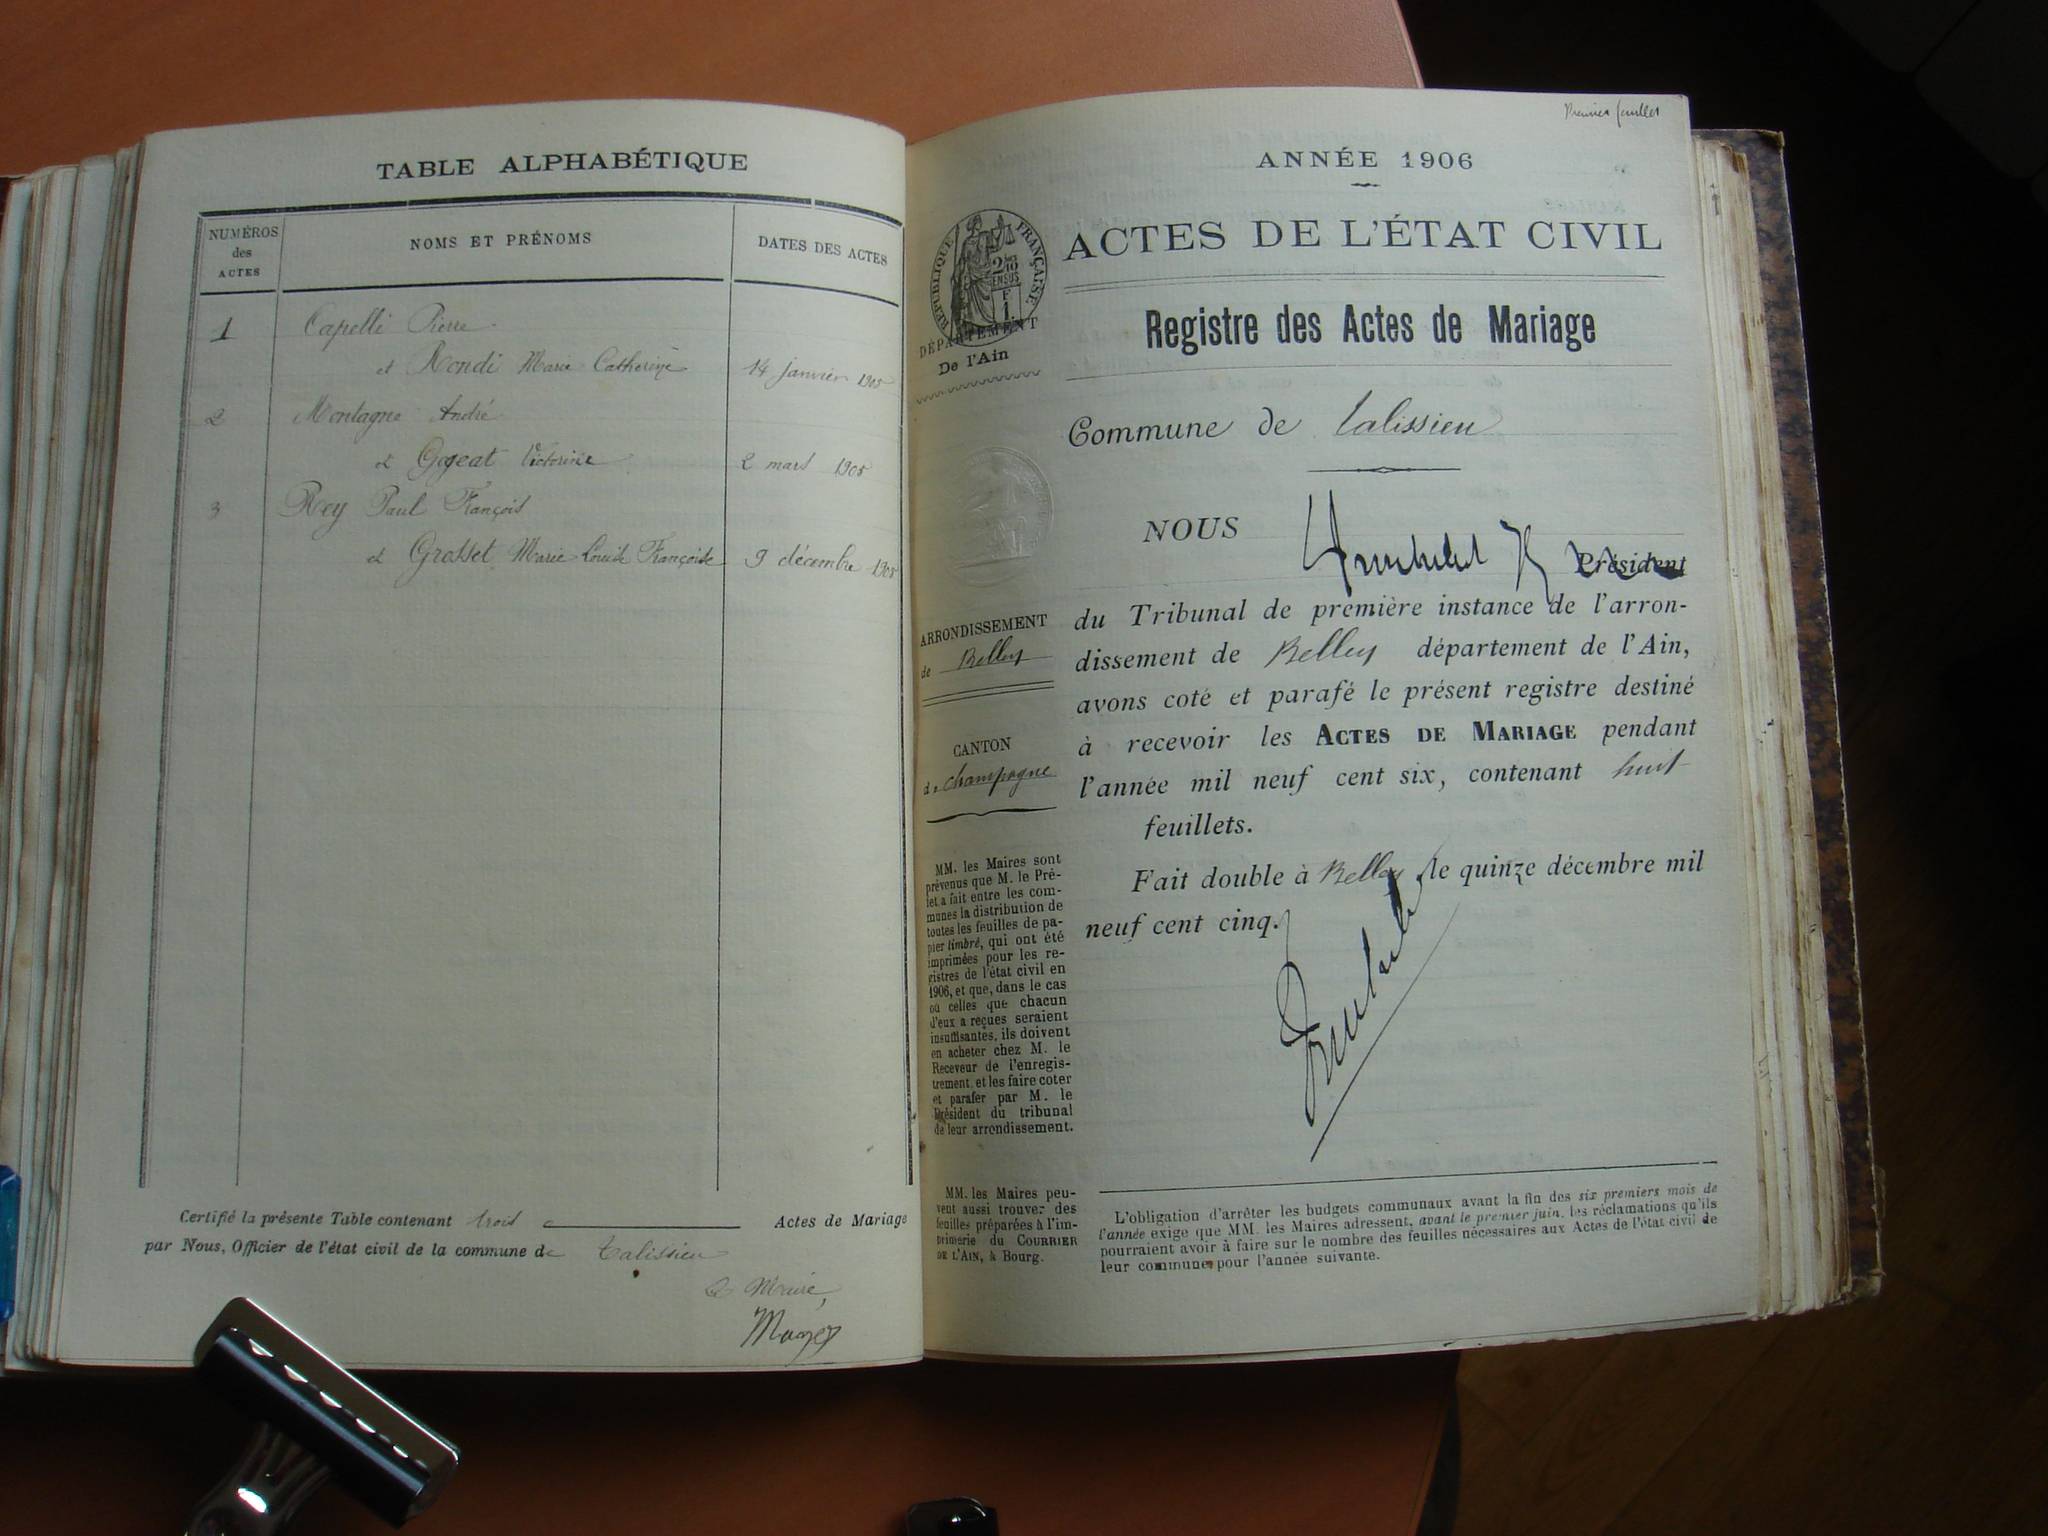 TABLE ALPHABÉTIQUE
NUMÉROS
des
ACTES
NOMS ET PRÉNOMS
DATES DES ACTES
1
Capelli Pierre
et Rondi Marie Catherine
14 janvier 1905
2
Montagne André
et Gogeat Victorine
2 mars 1905
3
Rey Paul François
et Grosset Marie Louise Françoise
9 décembre 1905
Certifié la présente Table contenant trois Actes de Mariage
par Nous, Officier de l'état civil de la commune de Talissieu
Le Maire,
Premier feuillet
ANNÉE 1906
RÉPUBLIQUE FRANÇAISE
DÉPARTEMENT
De l'Ain
ACTES DE L'ÉTAT CIVIL
Registre des Actes de Mariage
Commune de Talissieu
NOUS
Président
du Tribunal de première instance de l'arron-
dissement de Belley département de l'Ain,
avons coté et parafé le présent registre destiné
à recevoir les ACTES DE MARIAGE pendant
l'année mil neuf cent six, contenant huit
feuillets.
Fait double à Belley, le quinze décembre mil
neuf cent cinq.
ARRONDISSEMENT
de Belley
CANTON
de Champagne
MM. les Maires sont
prévenus que M. le Pré-
fet a fait entre les com-
munes la distribution de
toutes les feuilles de pa-
pier timbré, qui ont été
imprimées pour les re-
gistres de l'état civil en
1906, et que, dans le cas
où celles que chacun
d'eux a reçues seraient
insuffisantes, ils doivent
en acheter chez M. le
Receveur de l'enregis-
trement, et les faire coter
et parafer par M. le
Président du tribunal
de leur arrondissement.
MM. les Maires peu-
vent aussi trouver des
feuilles préparées à l'im-
primerie du COURRIER
DE L'AIN, à Bourg.
L'obligation d'arrêter les budgets communaux avant la fin des six premiers mois de
l'année exige que MM. les Maires adressent, avant le premier juin, les réclamations qu'ils
pourraient avoir à faire sur le nombre des feuilles nécessaires aux Actes de l'état civil de
leur commune pour l'année suivante.